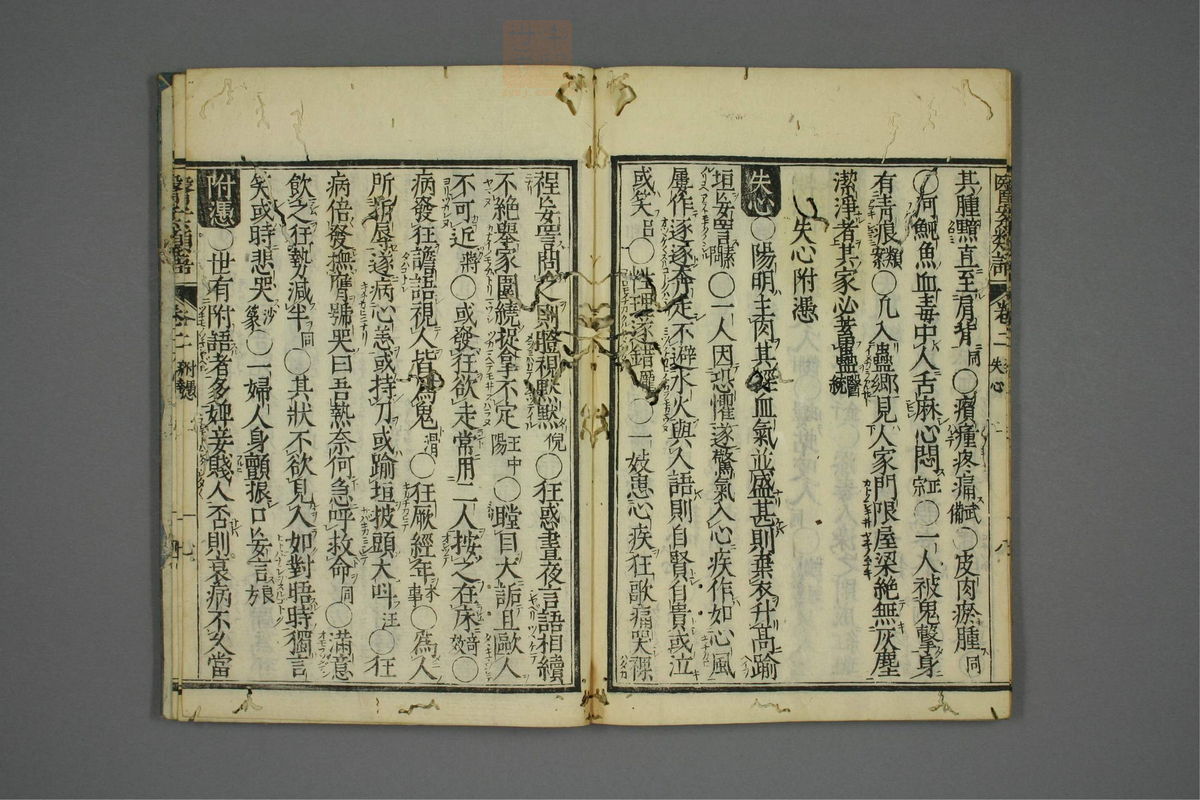 其腫黯直至肩背同○瘡瘇疼痛武備○皮肉瘀腫同
○河魨魚血毒中人舌麻心悶正宗○一人被鬼擊身
有青痕○凡入蠱鄉見人家門限屋梁絶無灰塵
潔淨者其家必畜蠱醫統
失心附憑
失心○陽明主肉其經血氣並盛甚則棄衣升高踰
垣妄罵○一人因恐懼遂驚氣入心疾作如心風
屢作逐逐奔走不避水火與人語則自賢自貴或泣
或笑呂○性理逐錯○一妓患心疾狂歌痛哭裸
裎妄罵問之則瞪視默默倪○狂惑晝夜言語相續
不絶舉家圍繞捉拿不定王中陽○瞠目大詬且毆人
不可近蔣○或發狂欲走常用二人按之在床奇效○
病發狂譫語視人皆為鬼○狂厥經年事○為人
所折辱遂病心恙或持刀或踰垣披頭大叫汪○狂
病倍發撫膺號哭曰吾熱奈何急呼救命同○滿意
飲之狂勢減半同○其狀不欲見人如對晤時獨言
笑或時悲哭沙篆○一婦人身顫振口妄言良
附憑○世有附語者多婢妾賤人否則衰病不久當
卷二 失心 八
卷二 附憑